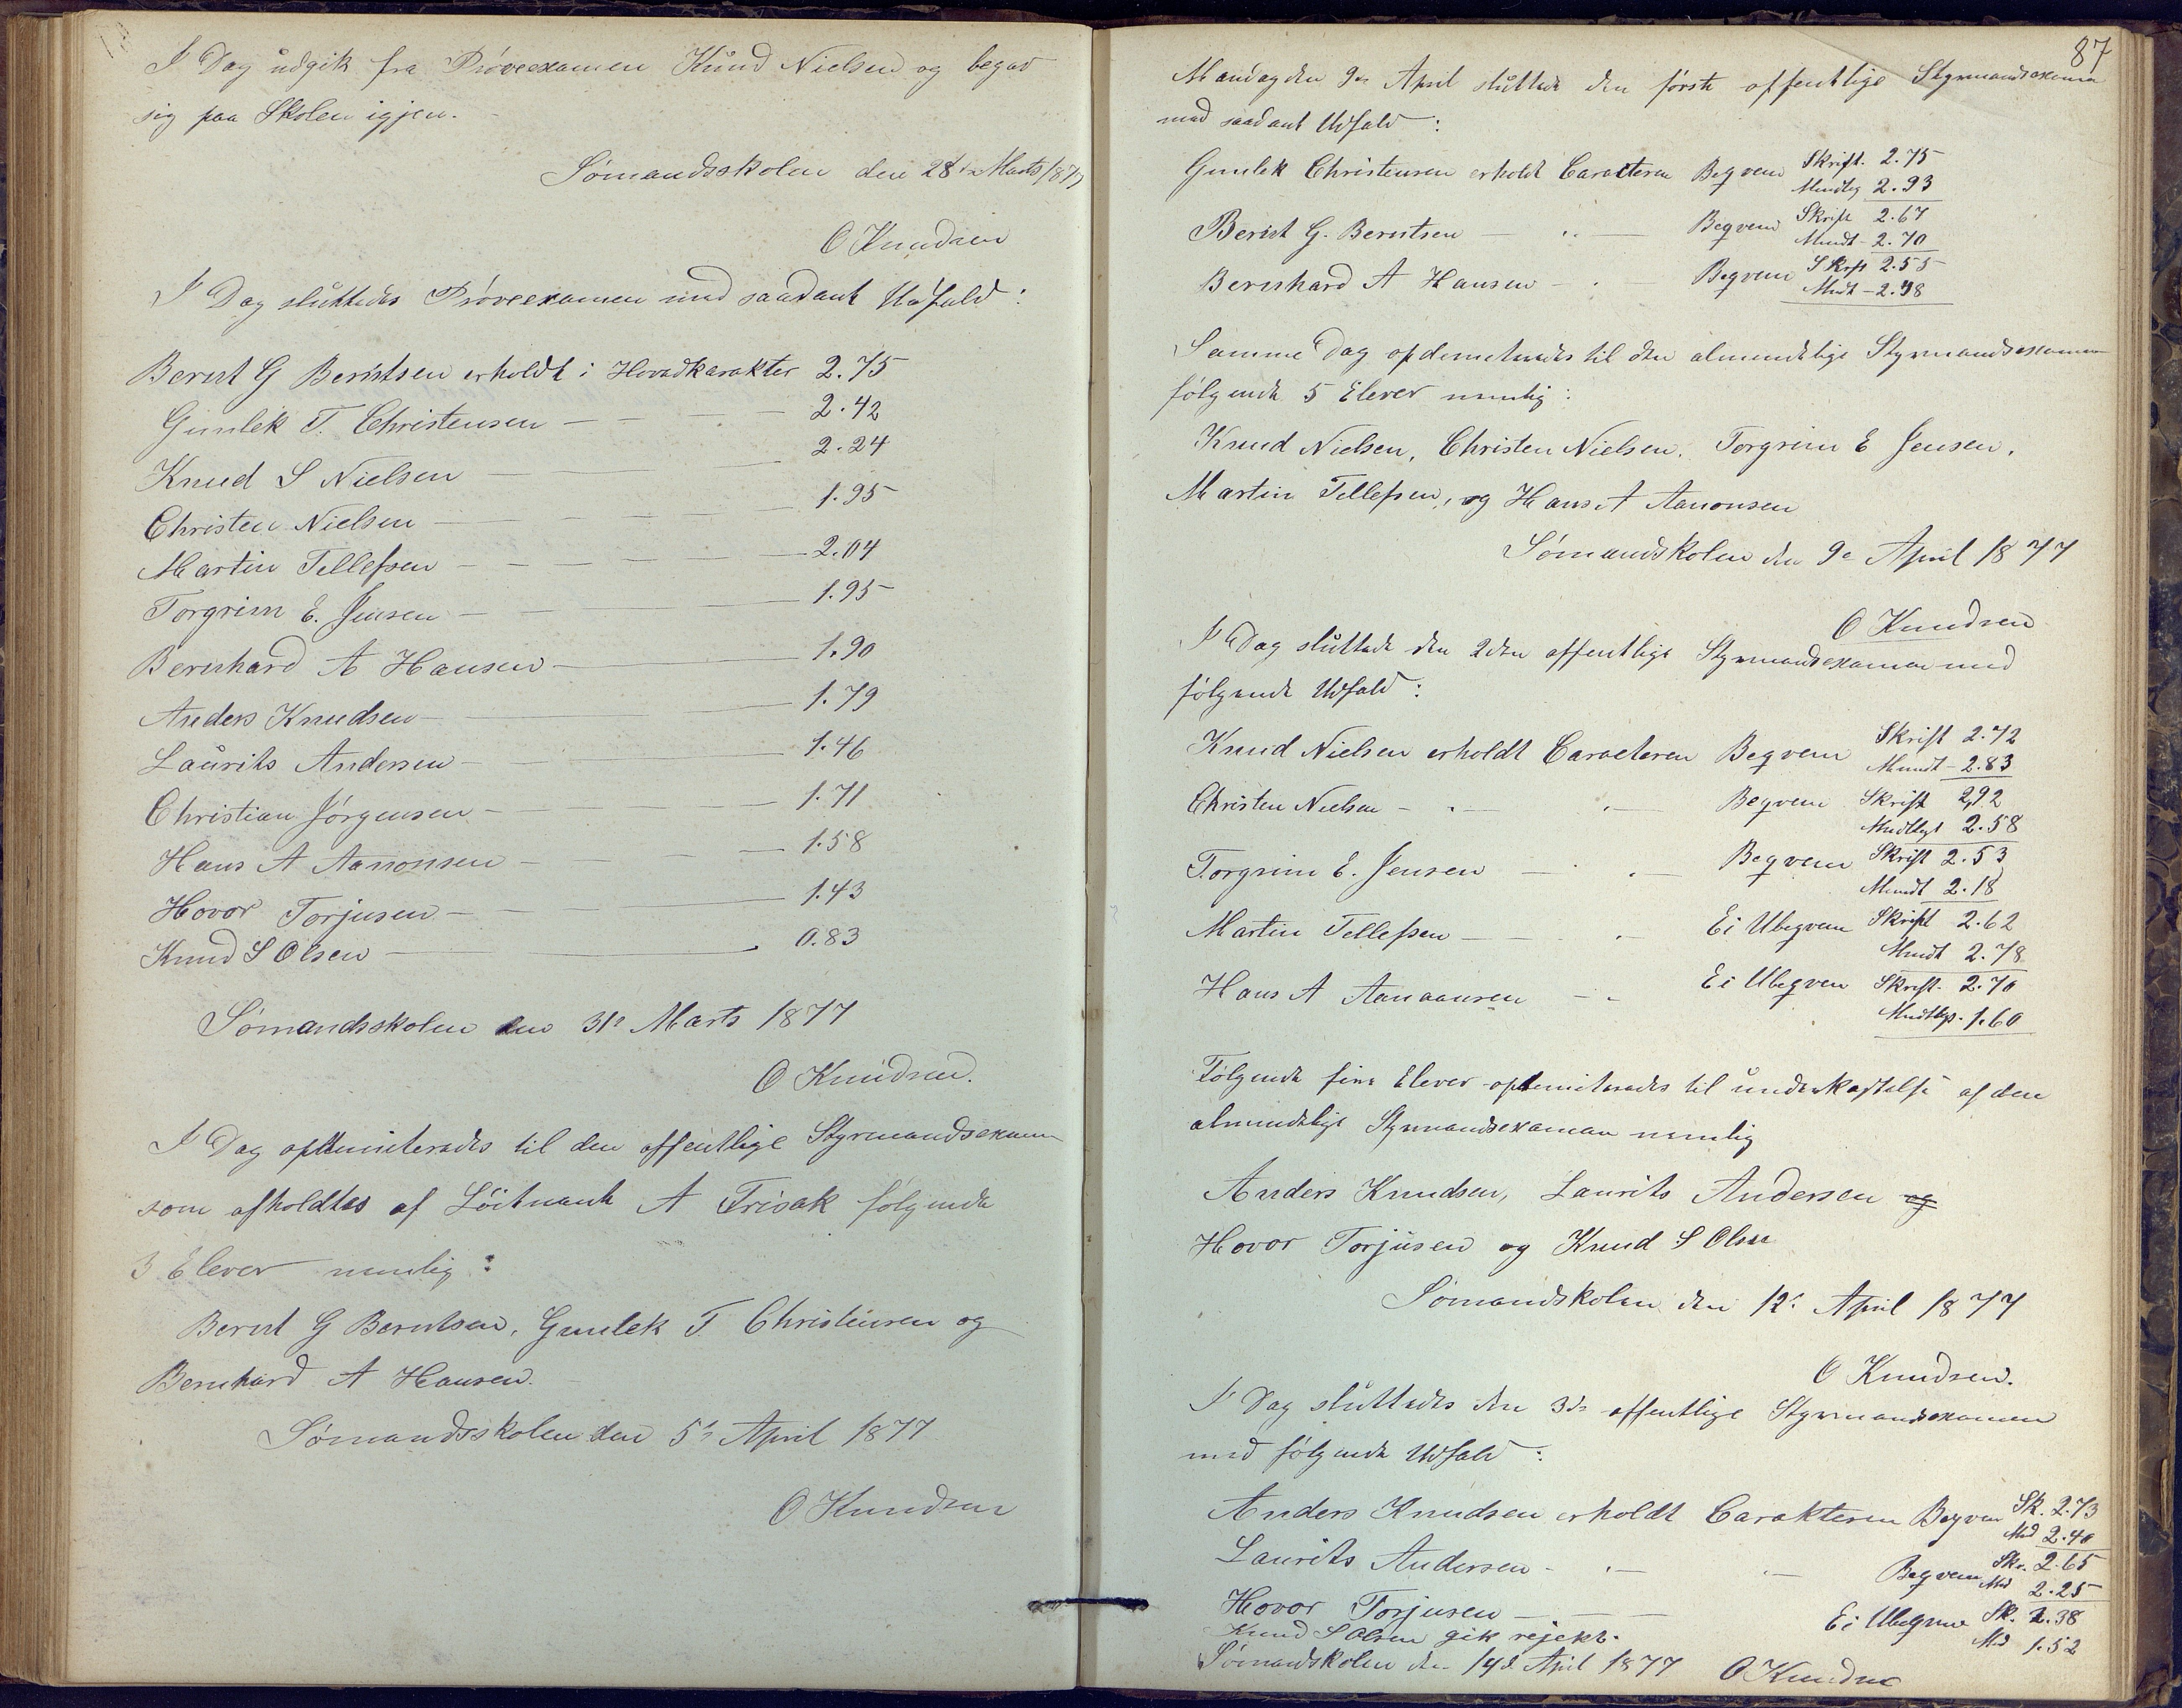 I Dag udgik fra Prøveexamen Knud Nielsen og begav
sig paa Skolen igjen.
Sømandsskolen den 28de Marts 1877
O Knudsen
I Dag sluttedes Prøveexamen med saadant Udfald:
Bernt G Berntsen erholdt i Hovedkarakter 2.75
Gunlek T. Christensen — — — 2.42
Knud S Nielsen — — — 2.24
Christen Nielsen — — — 1.95
Martin Tellefsen — — — 2.04
Torgrim E. Jensen — — — 1.95
Bernhard A Hansen — — 1.90
Anders Knudsen — — 1.79
Laurits Andersen — — 1.46
Christian Jørgensen — — 1.71
Hans A Aanonsen — — — 1.58
Hovor Torjusen — — 1.43
Knud S Olsen — — 0.83
Sømandsskolen den 31te Marts 1877
O Knudsen.
I Dag opdemiteredes til den offentlige Styrmandsexamen
som afholdtes af Löitnant A Frisak følgende
3 Elever nemlig:
Bernt G Berntsen, Gunlek T Christensen og
Bernhard A Hansen.
Sømandsskolen den 5te April 1877
O Knudsen
87
Mandag den 9de April sluttede den første offentlige Styrmandsexamen
med saadant Udfald:
Gunlek Christensen erholdt Caracteren Beqvem Skrift. 2.75
Mundtlig 2.93
Bernt G. Berntsen — „ — Beqvem Skrift 2.67
Mundt — 2.70
Bernhard A Hansen — „ Beqvem Skrft 2.55
Mudt — 2.98
Samme Dag opdemiteredes til den almindelige Styrmandsexamen
følgende 5 Elever nemlig:
Knud Nielsen, Christen Nielsen, Torgrim E Jensen,
Martin Tellefsen, og Hans A Aanonsen
Sømandskolen den 9de April 1877
O Knudsen
I Dag sluttede den 2den offentlige Styrmandsexamen med
følgende Udfald:
Knud Nielsen erholdt Caracteren Beqvem Skrift 2.72
Mundt — 2.83
Christen Nielsen — „ — „ — Beqvem Skrift 2,92
Mudtlgt 2.58
Torgrim E. Jensen — „ — Beqvem Skrift 2.53
Mundt 2.18
Martin Tellefsen — — „ — Ei Ubeqvem Skrift 2.62
Mundt 2.78
Hans A Aanaansen — „ Ei Ubeqvem Skrift. 2.70
Mudtlgt. 1.60
Følgende fire Elever opdemiteredes til underkastelse af den
almindelige Styrmandsexamen nemlig
Anders Knudsen, Laurits Andersen og
Hovor Torjusen og Knud S Olsen
Sømandskolen den 12te April 1877
O Knudsen.
I Dag sluttedes den 3die offentlige Styrmandsexamen
med følgende Udfald:
Anders Knudsen erholdt Carakteren Beqvem Sk. 2.73
Md 2.40
Laurits Andersen — „ — „ — Beqvem Skr. 2.65
Md 2.25
Hovor Torjusen — — — Ei Ubeqvem Sk. 2.38
Md 1.52
Knud S Olsen gik rejekt.
Sømandskolen den 14de April 1877 O Knudsen